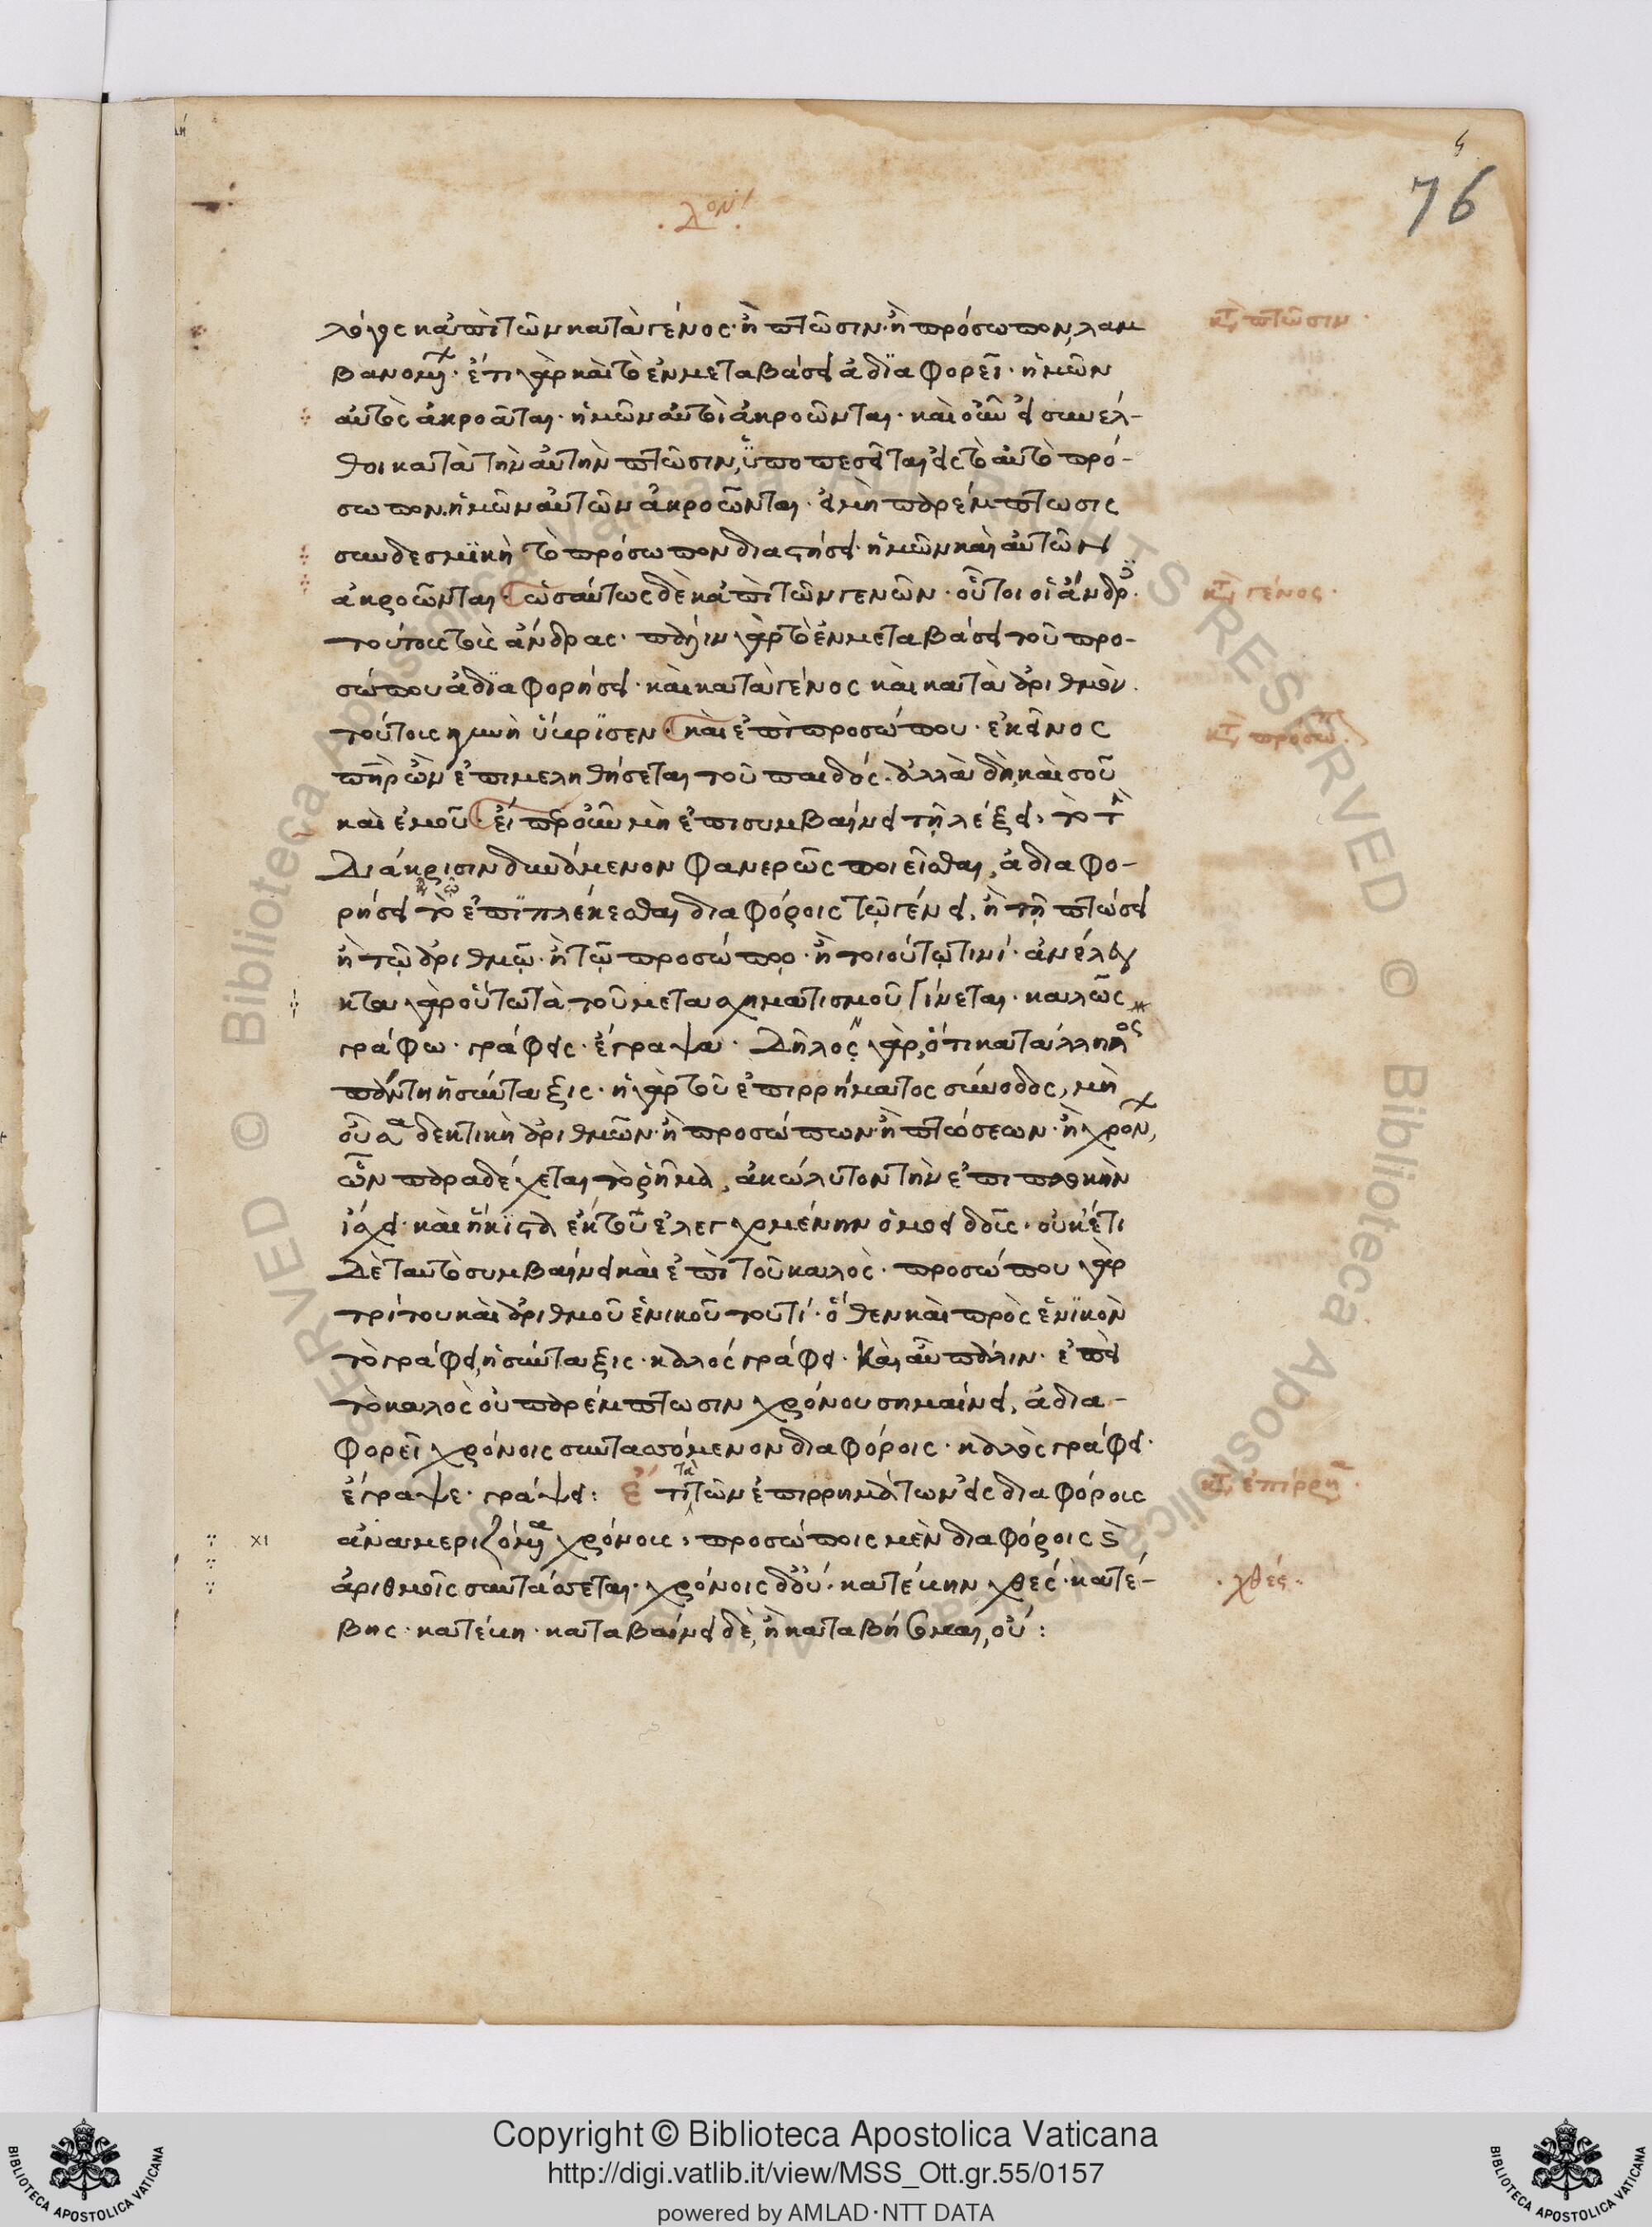 76
λόγος κἀπὶ τῶν κατὰ γένος· ἢ πτῶσιν· ἢ πρόσωπον, λαμ
βανομένων· ἔτι γὰρ καὶ τὸ ἐν μεταβάσει ἀδϊαφορεῖ· ἡμῶν
αὐτὸς ἀκροᾶται· ἡμῶν αὐτοὶ ἀκροῶνται· καὶ οὖν εἰ συνέλ-
θοι κατὰ τὴν αὐτὴν πτῶσιν, ὑποπεσεῖται εἰς τὸ αὐτὸ πρό-
σωπον. ἡμῶν αὐτῶν ἀκροῶνται· εἰ μὴ παρέμπτωσις
συνδεσμϊκὴ τὸ πρόσωπον διαστήσει· ἡμῶν καὶ αὐτῶν
ἀκροῶνται· ὡσαύτως δὲ κἀπὶ τῶν γενῶν· οὗτοι οἱ ἄνδρες·
τούτους τοὺς ἄνδρας· πάλιν γὰρ τὸ ἐν μεταβάσει τοῦ προ-
σώπου ἀδϊαφορήσει· καὶ κατὰ γένος καὶ κατὰ ἀριθμόν.
τούτοις ἡ γυνὴ ὕβρϊσεν· καὶ ἐπὶ προσώπου· ἐκεῖνος
παρὼν ἐπιμεληθήσεται τοῦ παιδός· ἀλλὰ δὴ καὶ σοῦ
καὶ ἐμοῦ· εἴπερ οὖν μὴ ἐπισυμβαίνει τῇ λέξει, τὸ τὴν
διάκρισιν δυνάμενον φανερῶς ποιεῖσθαι, ἀδιαφο-
ρήσει τὸ ἐπϊπλέκεσθαι διαφόροις τῷ γένει, ἢ τῇ πτώσει
ἢ τῷ ἀριθμῷ· ἢ τῷ προσώπῳ· ἢ τοιούτῳ τινί· ἀνέλεγ
κτα γὰρ οὕτω τὰ τοῦ μετασχηματισμοῦ γίνεται· καλῶς
γράφω· γράφεις· ἔγραψα· δῆλον γὰρ, ὅτι κατάλληλος
πάντῃ ἡ σύνταξις· ἡ γὰρ τοῦ ἐπιρρήματος σύνοδος, μὴ
οὖσα δεκτικὴ ἀριθμῶν· ἢ προσώπων· ἢ πτώσεων· ἢ χρόνων,
ὧν παραδέχεται τὸ ῥῆμα, ἀκώλυτον τὴν ἐπιπλοκὴν
ἴσχει· καὶ ἥκϊστα ἐκ τοῦ ἐλεγχομένην ὁμοειδοῦς· οὐκέτι
δὲ ταὐτὸ συμβαίνει καὶ ἐπὶ τοῦ καλὸς· προσώπου γὰρ
τρίτου καὶ ἀριθμοῦ ἑνικοῦ τουτί· ὅθεν καὶ πρὸς ἑνϊκὸν
τὸ γράφει, ἡ σύνταξις· καλὸς γράφει. Καὶ αὖ πάλιν· ἐπεὶ
τὸ καλὸς οὐ παρέμπτωσιν χρόνου σημαίνει, ἀδια-
φορεῖ χρόνοις συντασσόμενον διαφόροις· καλὸς γράφει·
ἔγραψε· γράψει: ἔτι τὰ τῶν ἐπιρρημάτων εἰς διαφόροις
ἀναμεριζόμενα χρόνοις, προσώποις μὲν διαφόροις καὶ
ἀριθμοῖς συντάσσεται· χρόνοις δ' οὔ· κατέβην χθές· κατέ-
βης· κατέβη· καταβαίνει δὲ, ἢ καταβήσομαι, οὔ:
κατὰ πτῶσιν·
κατὰ γένος·
κατὰ προσώπου
κατὰ ἐπιρρημ·
·χθές·
XI
Copyright © Biblioteca Apostolica Vaticana
http://digi.vatlib.it/view/MSS_Ott.gr.55/0157
powered by AMLAD·NTT DATA
BIBLIOTECA APOSTOLICA VATICANA
BIBLIOTECA APOSTOLICA VATICANA